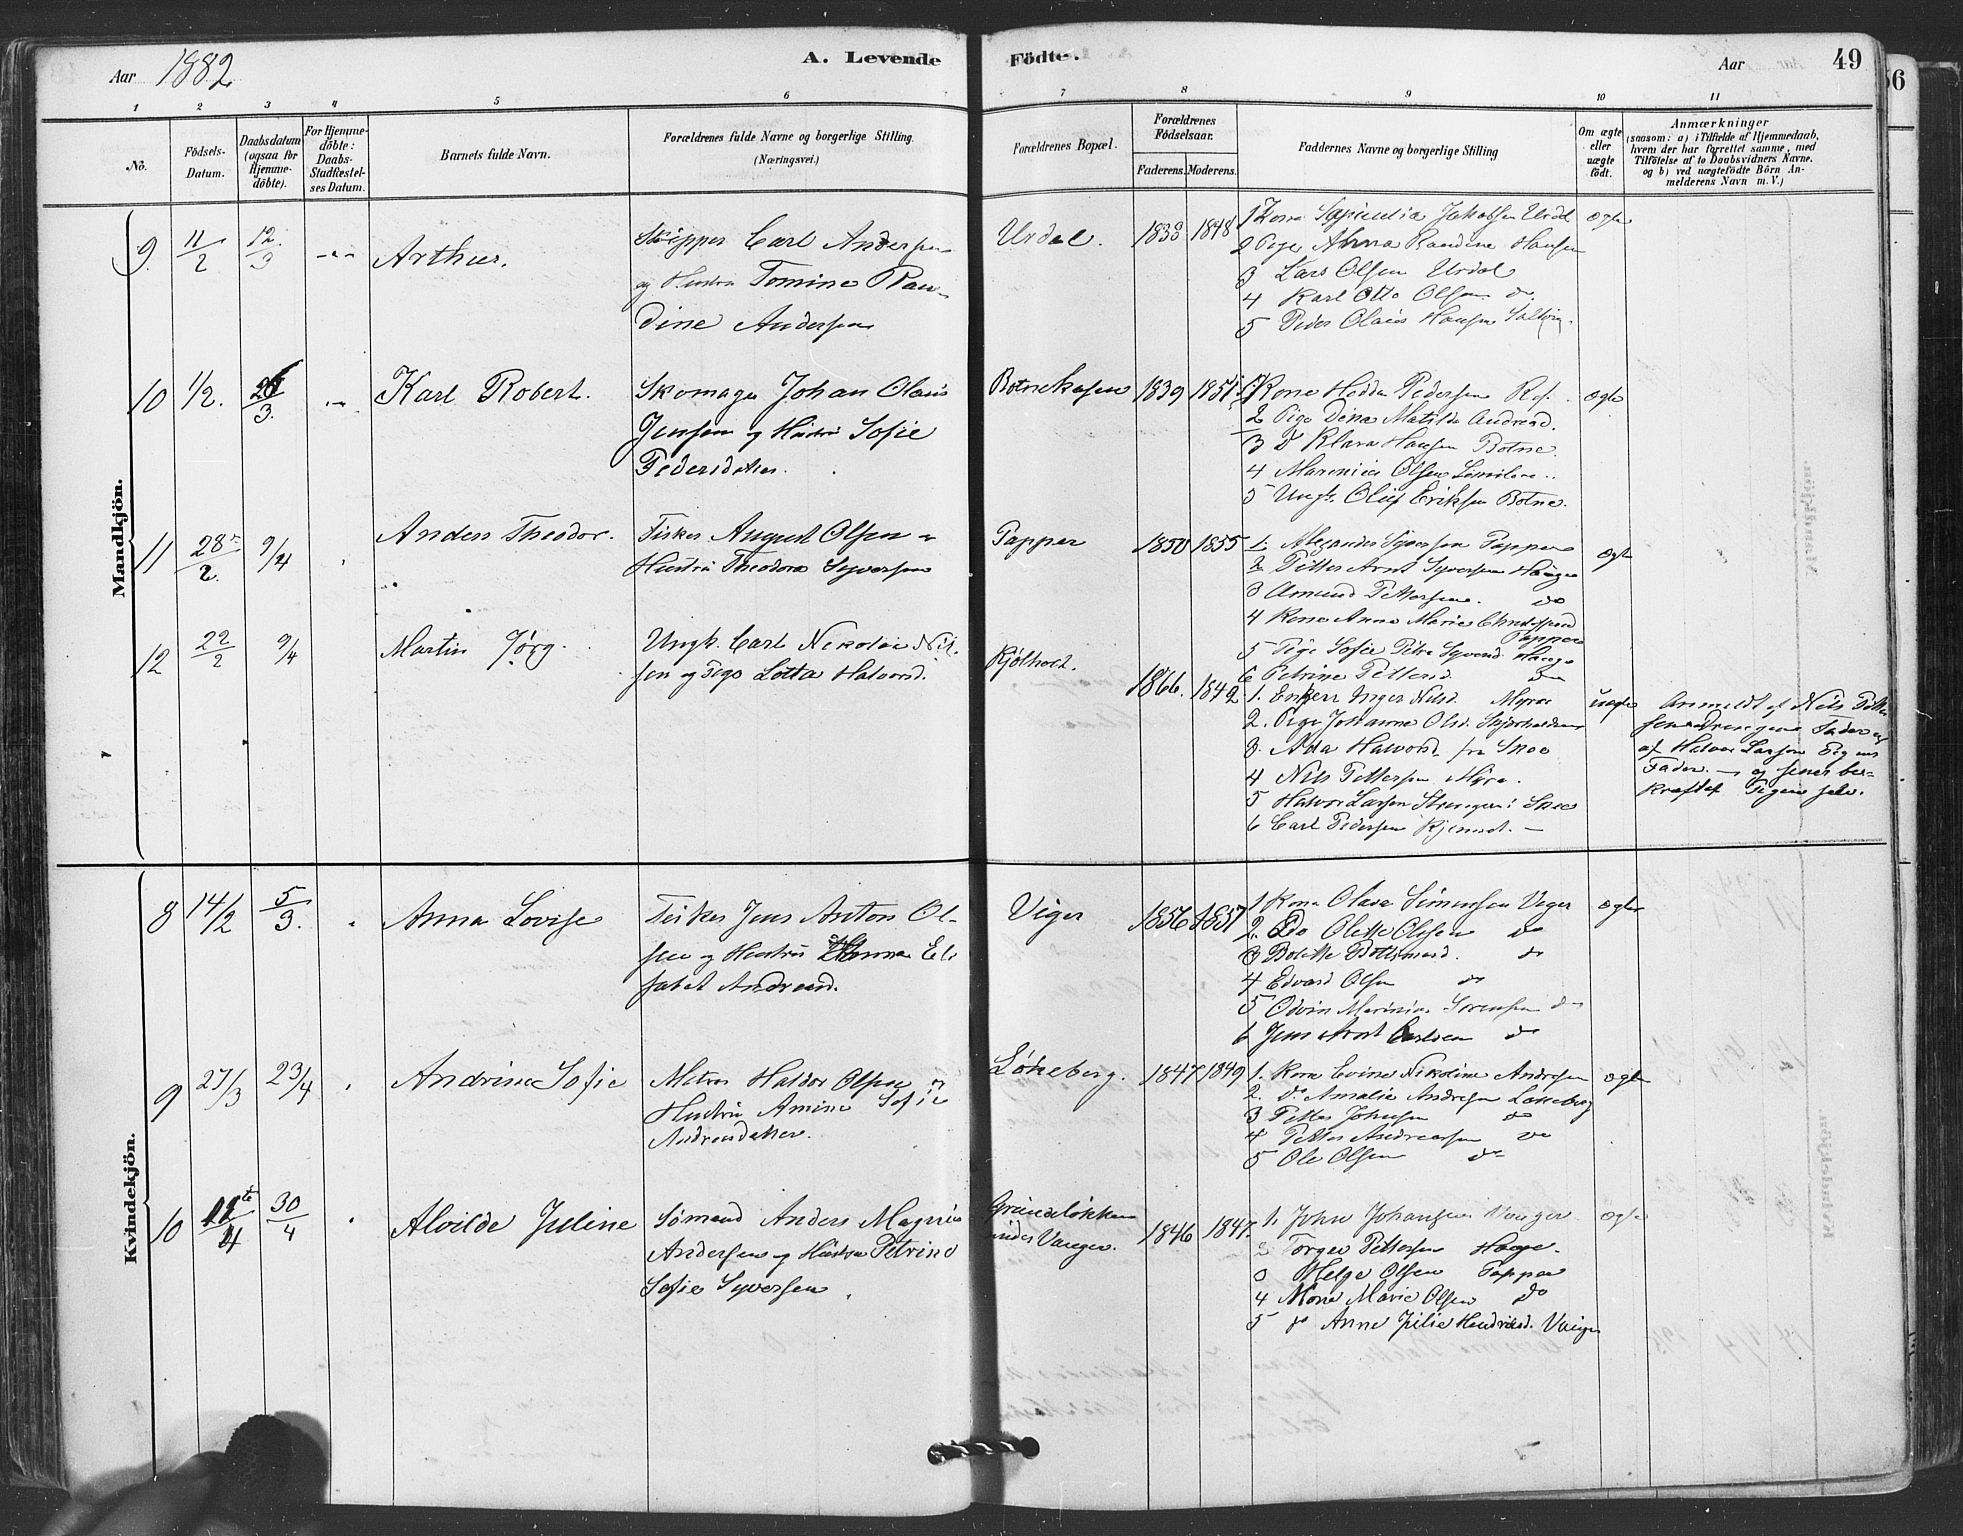 Aar 1882
A. Levende Födte.
Aar
49
56
1 2 3 4 5 6 7 8 9 10 11
No.
Födsels-Datum.
Daabsdatum (ogsaa for Hjemmedöbte).
For Hjemmedöbte: Daabs-Stadfæstelses Datum.
Barnets fulde Navn.
Forældrenes fulde Navne og borgerlige Stilling.
(Næringsvei.)
Forældrenes Bopæl.
Forældrenes Födselsaar.
Faderens. Moderens.
Faddernes Navne og borgerlige Stilling
Om ægte eller uægte födt.
Anmærkninger
(saasom: a) i Tilfælde af Hjemmedaab,
hvem der har forrettet samme, med
Tilföielse af to Daabsvidners Navne.
og b) ved uægtefödte Börn An-
melderens Navn m. V.)
Mandkjön.
9. 11/2 12/3 Arthur.
Skipper Carl Andersen
og Hustru Tomine Ran-
dine Andersen
Urdal. 1838 1848
1 Kone Jakobsen Urdal
2 Pige Anna Randine Hansen
3 Lars Olsen Urdal
4 Karl Otto Olsen do.
5 Peder Olaus Hansen
Ægte
10 1/2. 26/3. Karl Robert.
Skomager Johan Olaus
Jensen og Hustru Sofie
Pedersdatter.
Botnehagen 1839 1851
1 Kone Hedda Pedersen
2 Pige Dina Matilda Andreasd.
3 do Klara Hansen Botne.
4 Marenius Olsen
5 Ungk. Oluf Eriksen Botne.
Ægte
11 28/2. 9/4 Anders Theodor.
Fisker August Olsen og
Hustru Theodora Syversen
Papper 1850 1855
1. Alexander Syversen Papper
2 Petter Arnt Syversen Hauge
3 Amund Pettersen. do
4 Kone Anna Marie
Papper
5 Pige Sofie Petra Syversd. Hauge
6 Petrine Pettersd. do
Ægte
12 22/2 9/4 Martin Jørg.
Ungk. Carl Nikolai Nil-
sen og Pige Lotta Halvorsd.
Kjølholt. 1866. 1842
1. Enke Inger Nilsd. Myra
2. Pige Johanne Olsd.
3. Ada Halvorsd. fra
4 Nils Pettersen Myra.
5 Halvor Larsen
6 Carl Pedersen
uægte
Anmeldt af Nils Petter-
sen Drengens Fader og
af Halvor Larsen Pigens
Fader. — og senere be-
kræftet Pigen selv.
Kvindekjön.
8 14/2 5/3. Anna Lovise
Fisker Jens Anton Ol-
sen og Hustru Hanna Eli-
sabet Andreasd.
Viger 1856 1857
1 Kone Olava Simensen Viger
2. Do Olette Olsen do
3 Bolette do
4 Edvard Olsen do
5 Odvin Marinius Sørensen do
6 Jens Arnt Carlsen do
Ægte
9 27/3 23/4 Andrine Sofie
Matros Haldor Olsen og
Hustru Amine Sofie
Andreasdatter.
Løkeberg. 1847 1849
1. Kone Evine Nikoline Andresen
2. do Amalie Andresen Løkeberg
3 Petter Johnsen do
4 Petter Andreassen do
5 Ole Olsen do
Ægte
10 11te/4 30/4 Alvilde Juline
Sømand Anders Magnus
Andersen og Hustru Petrine
Sofie Syversen
Grändeløkken
under Vauger. 1846 1847.
1. John Johansen Vauger
2 Torger Pettersen Hauge.
3 Helge Olsen Papper
4 Kone Marie Olsen do
5 do Anne Julie Hendriksd. Vauger
Ægte